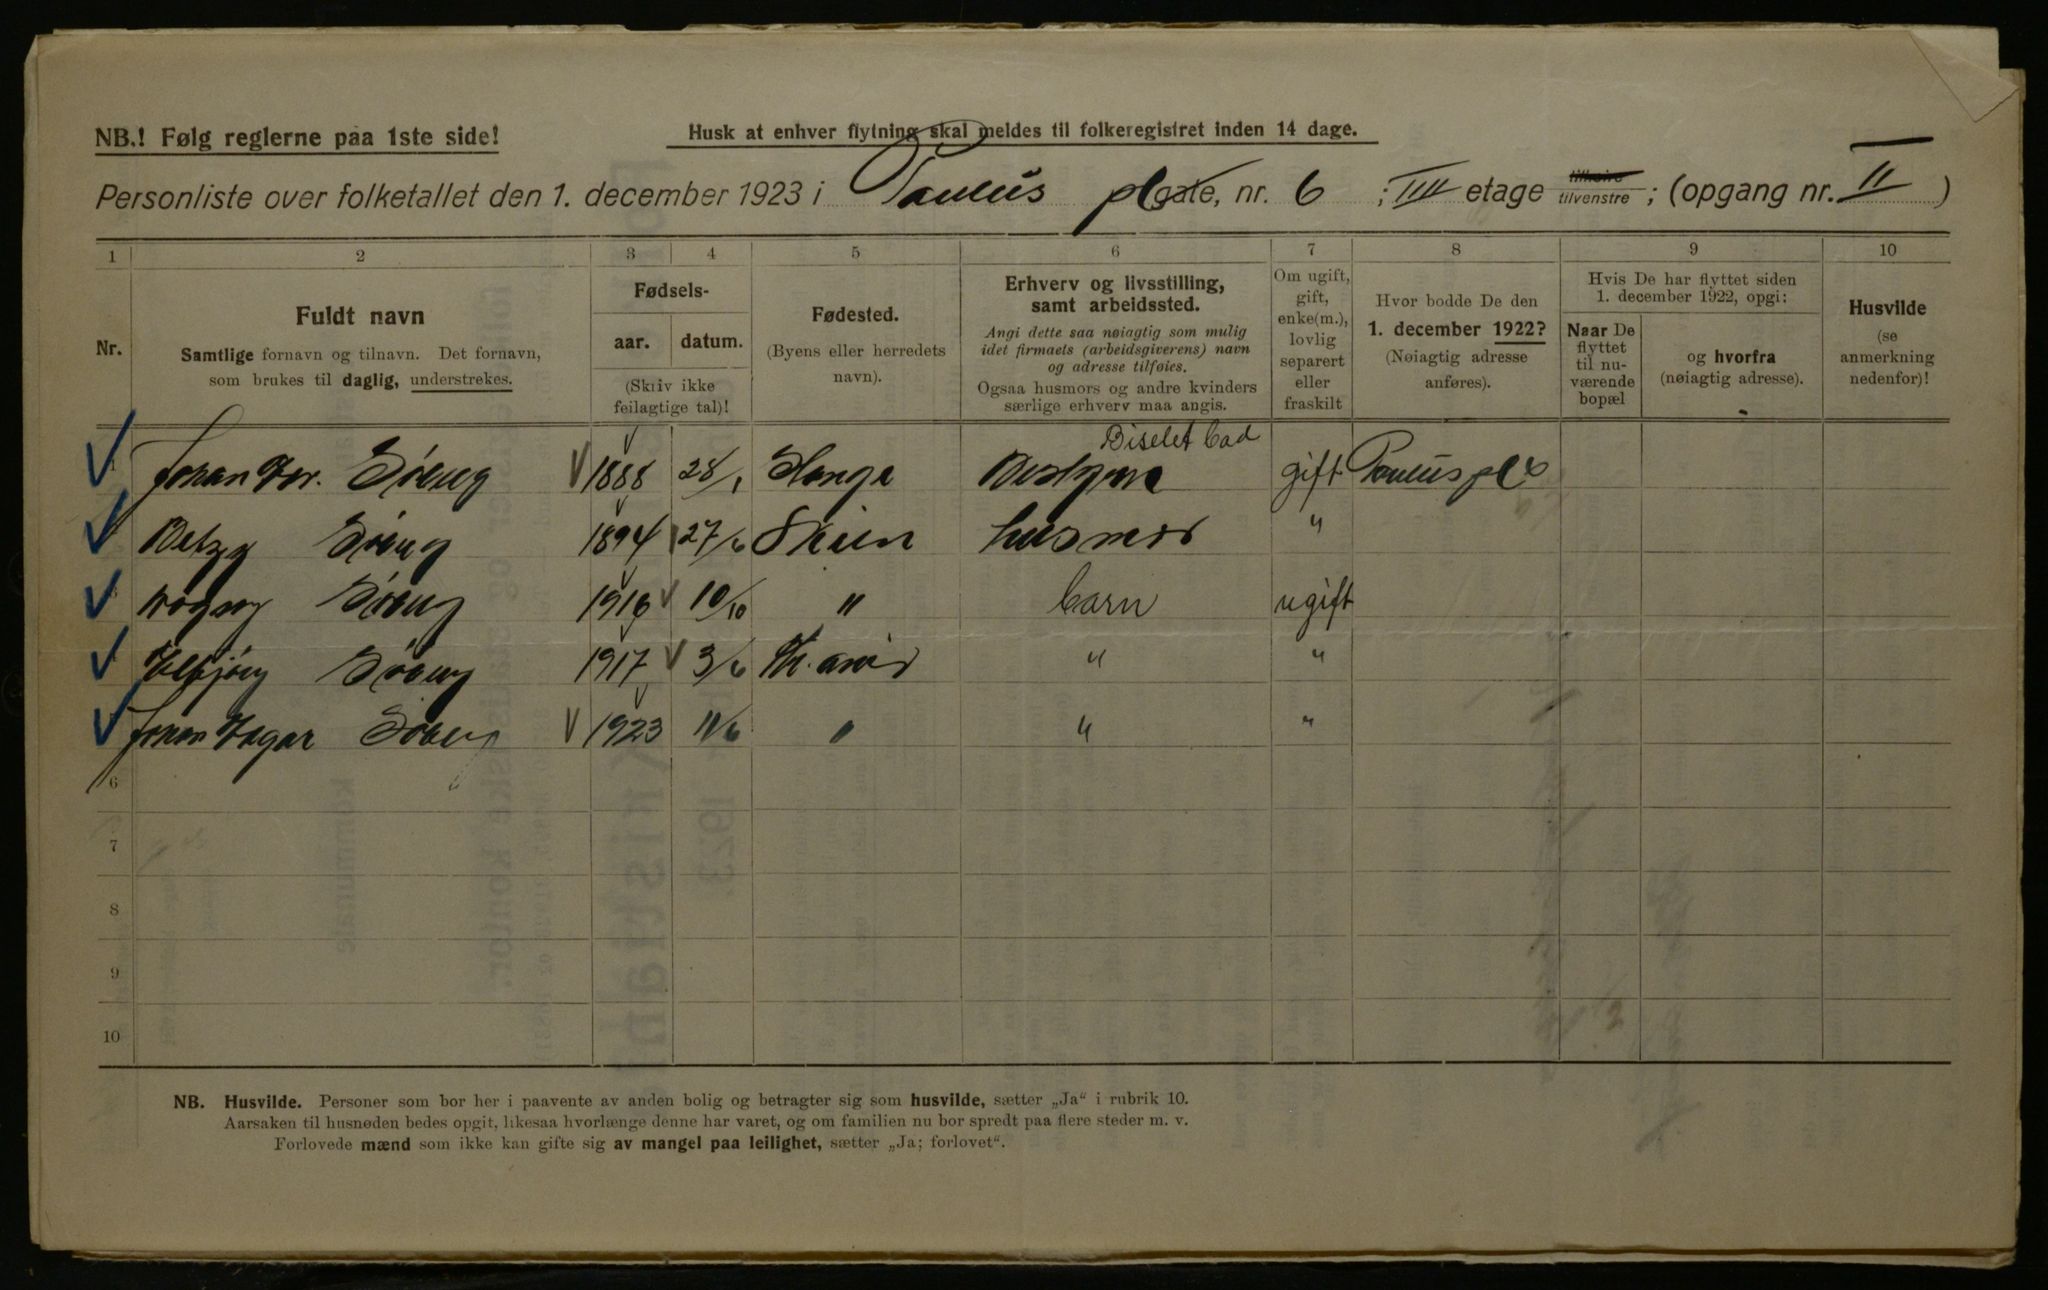 NB.! Følg reglerne paa 1ste side!
Husk at enhver flytning skal meldes til folkeregistret inden 14 dage.
Personliste over folketallet den 1. december 1923 i Paulus pl gate, nr. 6 ; IIII etage tilhøire tilvenstre ; (opgang nr. II )
1 2 3 4 5 6 7 8 9 10
Nr.
Fuldt navn
Samtlige fornavn og tilnavn. Det fornavn,
som brukes til daglig, understrekes.
Fødsels-
aar. datum.
(Skriv ikke
feilagtige tal)!
Fødested.
(Byens eller herredets
navn).
Erhverv og livsstilling,
samt arbeidssted.
Angi dette saa nøiagtig som mulig
idet firmaets (arbeidsgiverens) navn
og adresse tilføies.
Ogsaa husmors og andre kvinders
særlige erhverv maa angis.
Om ugift,
gift,
enke(m.),
lovlig
separert
eller
fraskilt
Hvor bodde De den
1. december 1922?
(Nøiagtig adresse
anføres).
Hvis De har flyttet siden
1. december 1922, opgi:
Naar De
flyttet
til nu-
værende
bopæl
og hvorfra
(nøiagtig adresse).
Husvilde
(se
anmerkning
nedenfor)!
Biselet bad
Johan 1888 28/1 gift Paulus pl 6
1894 27/6 Skien husmor "
1916 10/10 " barn ugift
1917 3/6 " "
Johan 1923 11/6 " " "
6
7
8
9
10
NB. Husvilde. Personer som bor her i paavente av anden bolig og betragter sig som husvilde, sætter „Ja“ i rubrik 10.
Aarsaken til husnøden bedes opgit, likesaa hvorlænge denne har varet, og om familien nu bor spredt paa flere steder m. v.
Forlovede mænd som ikke kan gifte sig av mangel paa leilighet, sætter „Ja; forlovet“.